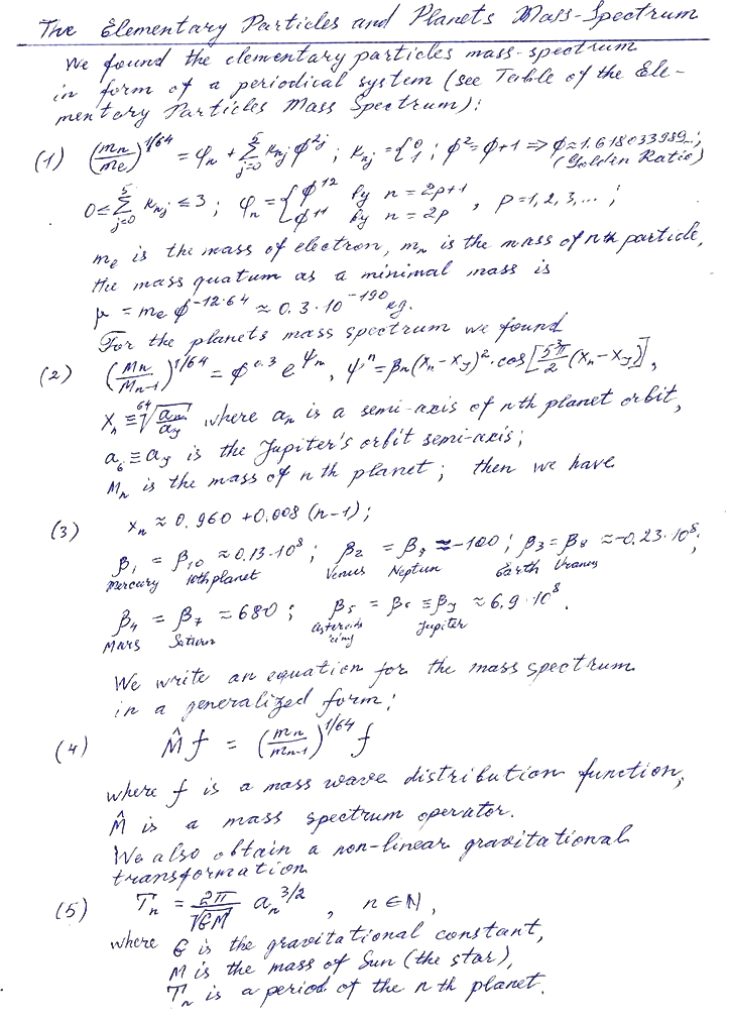 The Elementary Particles and Planets Mass-Spectrum
We found the elementary particles mass-spectrum
in form of a periodical system (see Table of the Ele-
mentary Particles Mass Spectrum):
(1) (mₙ/mₑ)^1/64 = φₙ + Σ_{j=0}^{5} Kₙⱼ ϕ^{2j} ; Kₙⱼ = {0, 1 ; ϕ² = ϕ+1 ⇒ ϕ ≈ 1.618033989...;
(Golden Ratio)
0 ≤ Σ_{j=0}^{5} Kₙⱼ ≤ 3 ; φₙ = { ϕ^12 by n = 2p+1
ϕ^11 by n = 2p , p = 1, 2, 3, ... ;
mₑ is the mass of electron, mₙ is the mass of nth particle,
the mass quatum as a minimal mass is
μ = mₑ ϕ^{-12·64} ≈ 0.3·10^{-190} kg.
For the planets mass spectrum we found
(2) (Mₙ/Mₙ₋₁)^1/64 = ϕ^{0.3} e^{ψₙ}, ψⁿ = βₙ(Xₙ - X_J)²·cos[5³π/2 (Xₙ - X_J)],
Xₙ ≡ ⁶⁴√(aₙ/a_J) where aₙ is a semi-axis of nth planet orbit,
a₆ ≡ a_J is the Jupiter's orbit semi-axis;
Mₙ is the mass of nth planet; then we have
(3) Xₙ ≈ 0.960 + 0.008 (n-1);
β₁ = β₁₀ ≈ 0.13·10⁸ ; β₂ = β₉ ≈ -100 ; β₃ = β₈ ≈ -0.23·10⁸;
Mercury 10th planet Venus Neptun Earth Uranus
β₄ = β₇ ≈ 680 ; β₅ = β₆ ≡ β_J ≈ 6.9·10⁸.
Mars Saturn asteroids ring Jupiter
We write an equation for the mass spectrum
in a generalized form:
(4) M̂ f = (mₙ/mₙ₋₁)^1/64 f
where f is a mass wave distribution function,
M̂ is a mass spectrum operator.
We also obtain a non-linear gravitational
transformation
(5) Tₙ = 2π/√GM aₙ^{3/2} , n ∈ N,
where G is the gravitational constant,
M is the mass of Sun (the star),
Tₙ is a period of the nth planet.